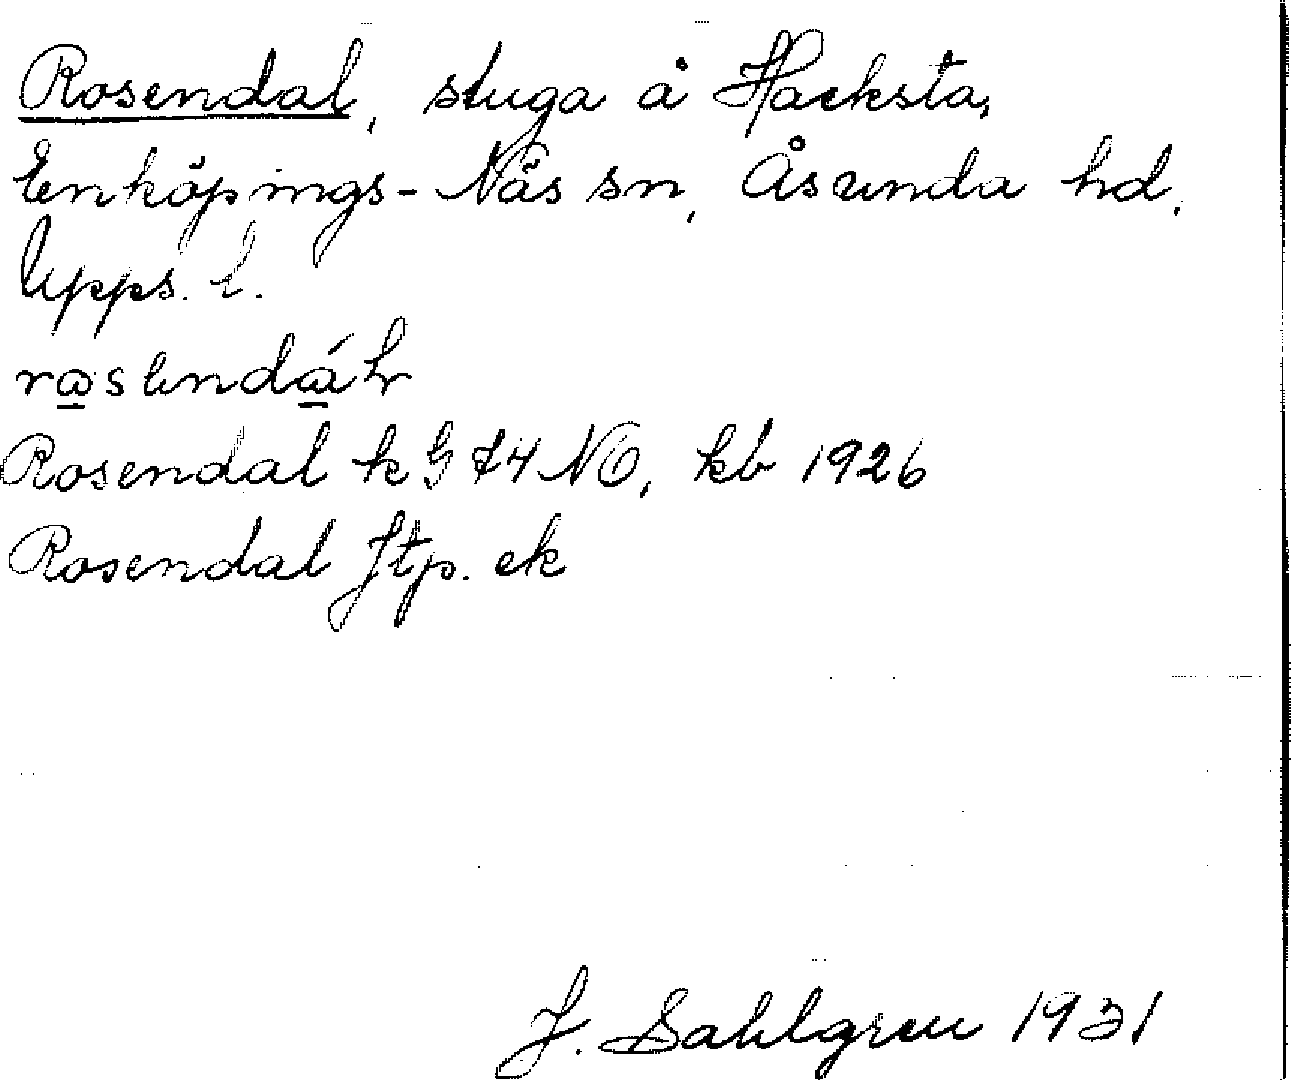 Rosendal, stuga å Hacksta,
Enköpings-Näs sn, Åsunda hd,
Upps. l.
Rosendal k G 74 NO, kb 1926
Rosendal Jtp. ek
J. Sahlgren 1931